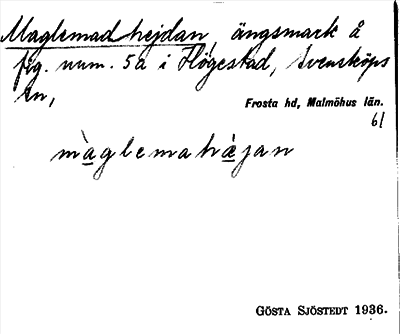 Maglemadhejdan, ängsmark å
fig. num. 5a i Högestad, Svensköps
sn,
Frosta hd, Malmöhus län.
61
màglemahæ̀jan
GÖSTA SJÖSTEDT 1936.